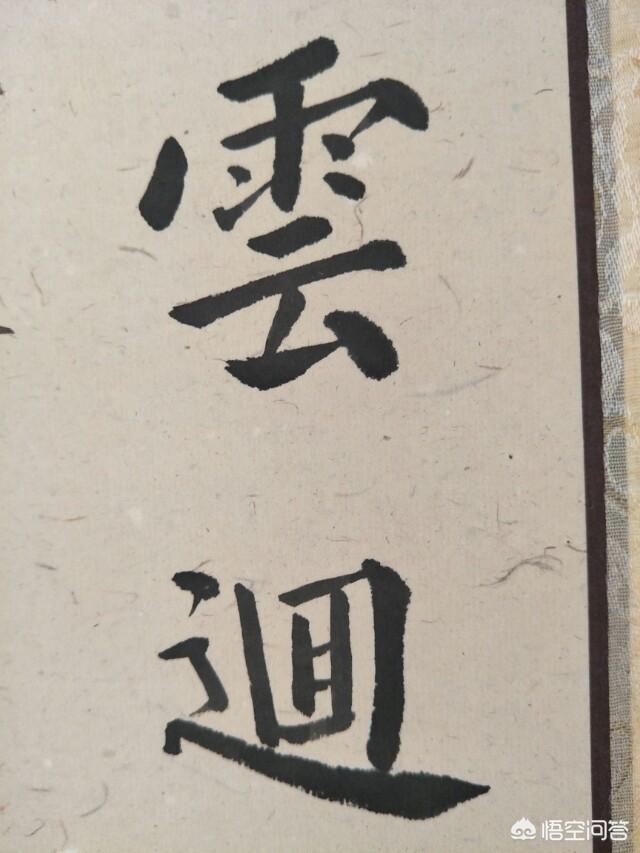 雲
迴
悟空问答